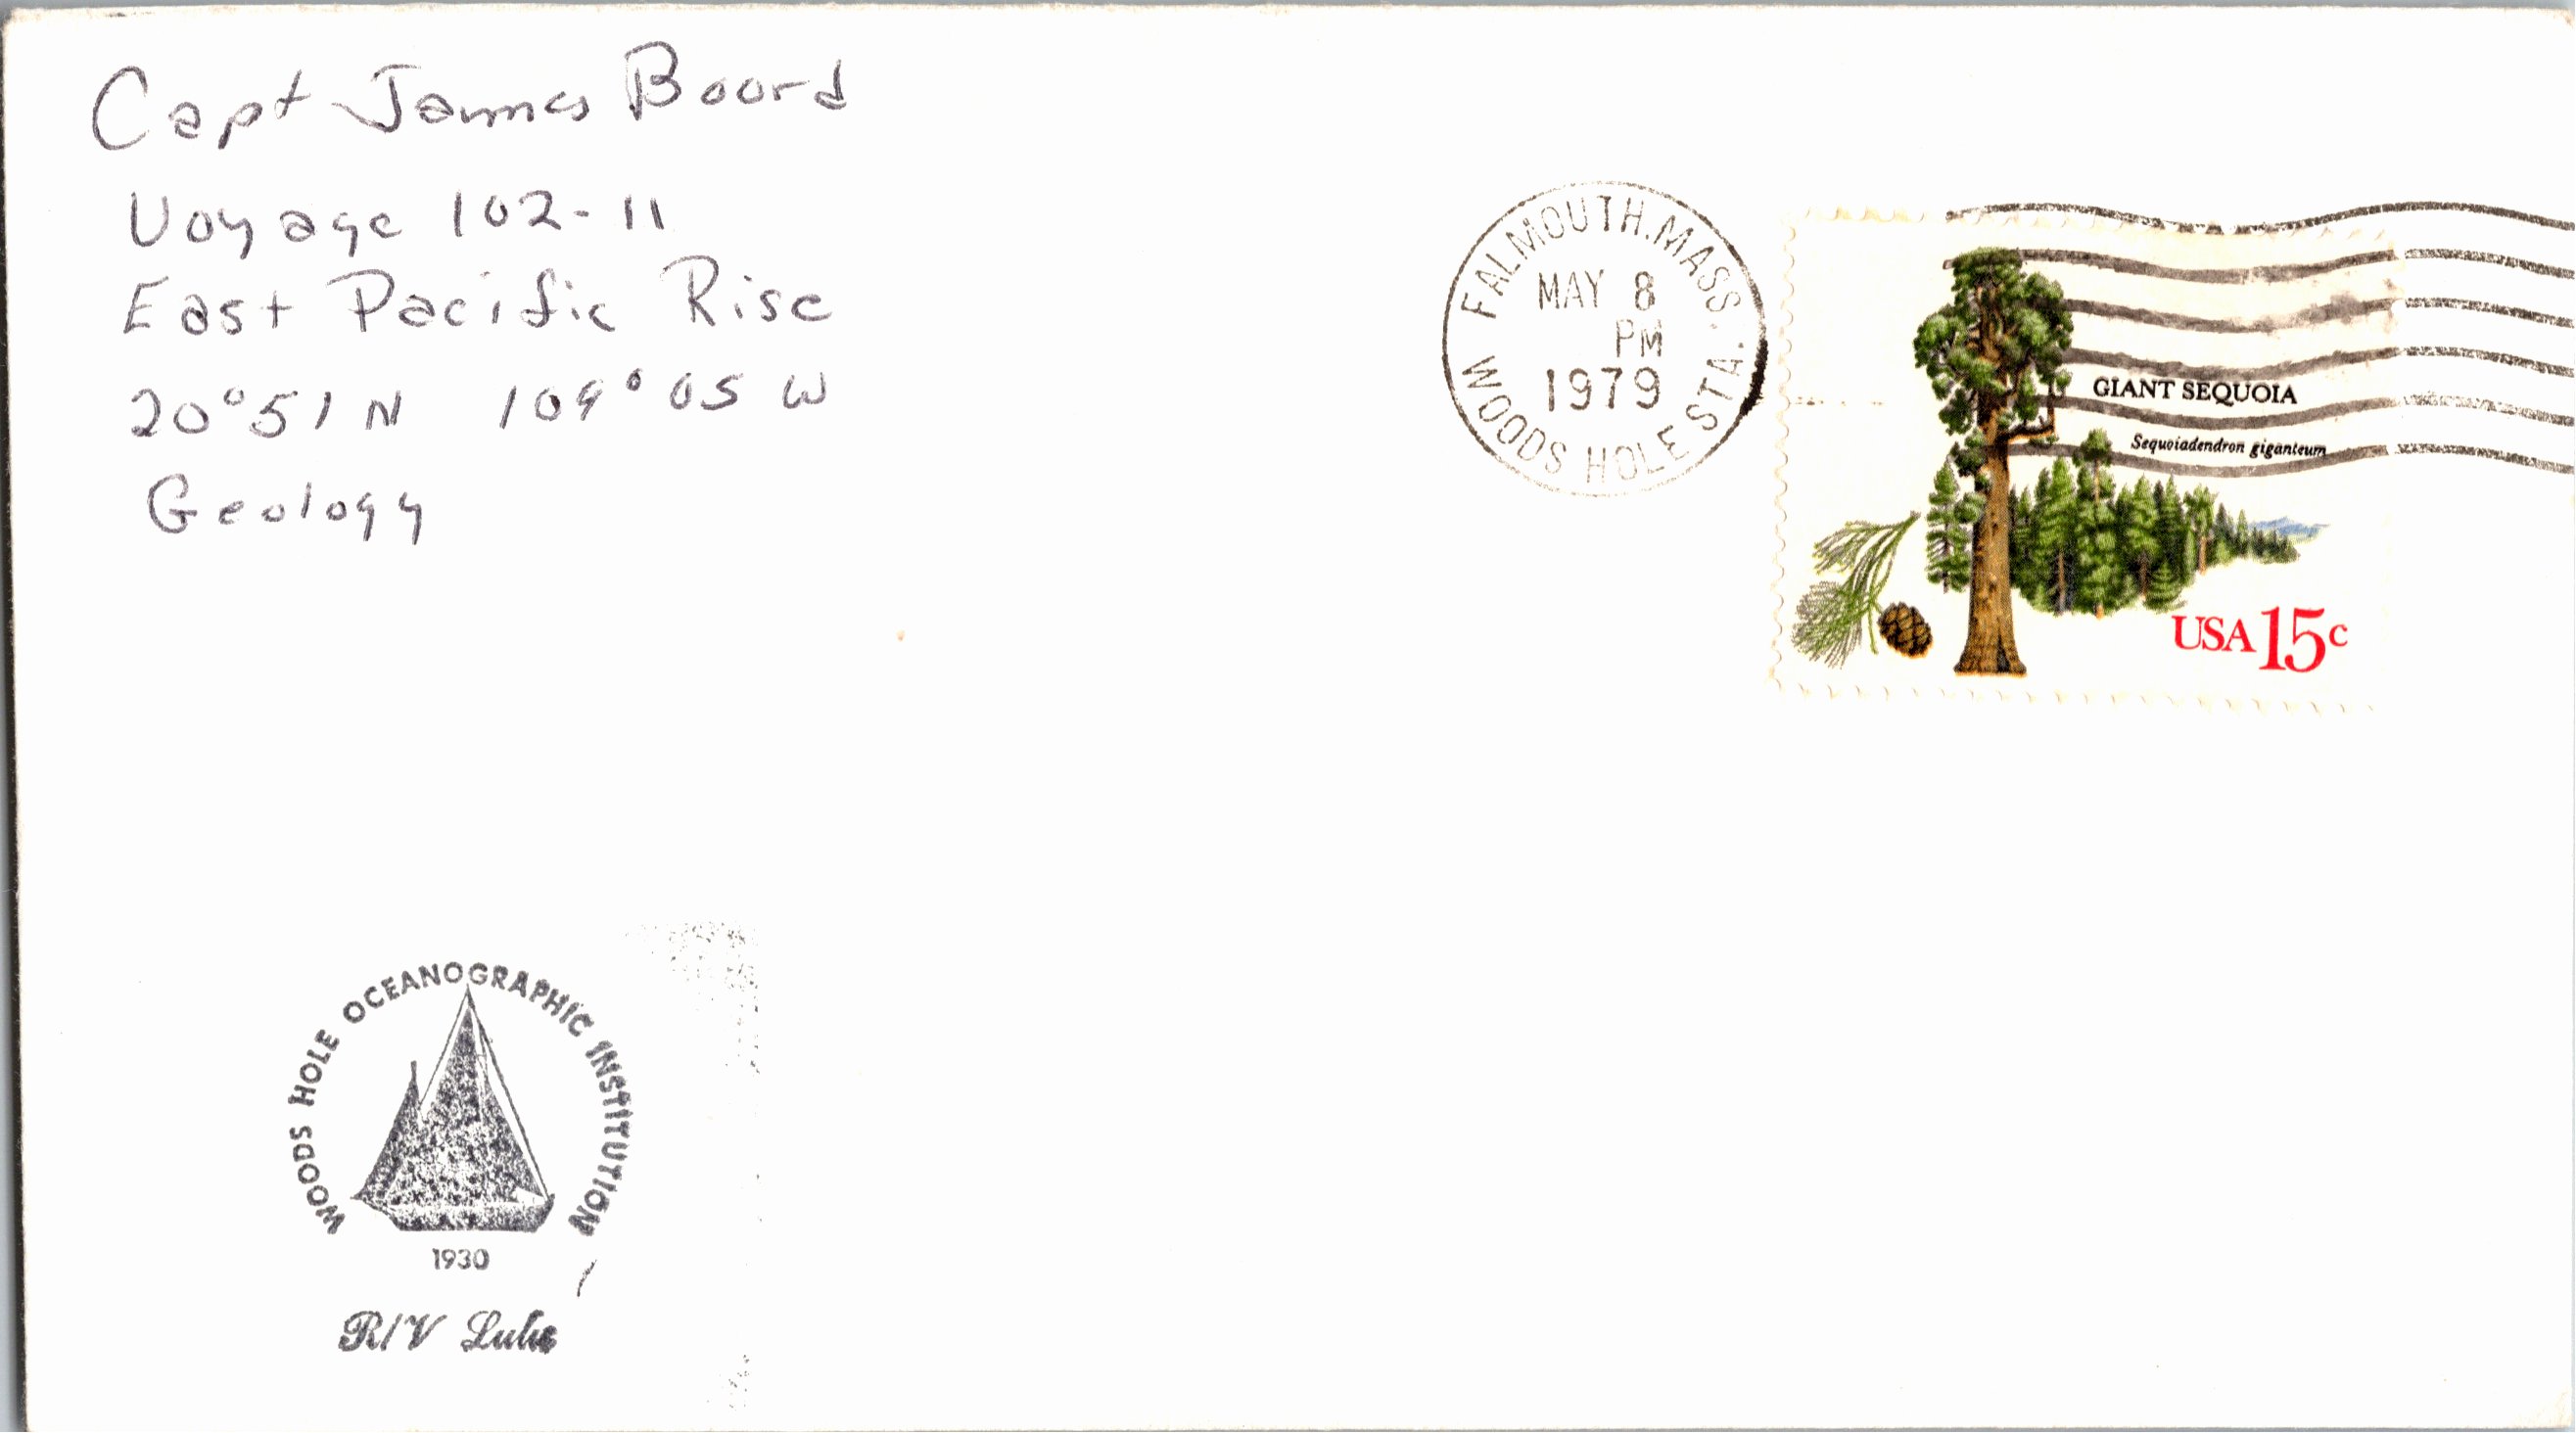 Capt James Boord
Voyage 102-11
East Pacific Rise
20°51 N 109°05 W
Geology
FALMOUTH. MASS.
MAY 8
PM
1979
WOODS HOLE STA.
GIANT SEQUOIA
Sequoiadendron giganteum
USA 15c
WOODS HOLE OCEANOGRAPHIC INSTITUTION
1930
R/V Lulu